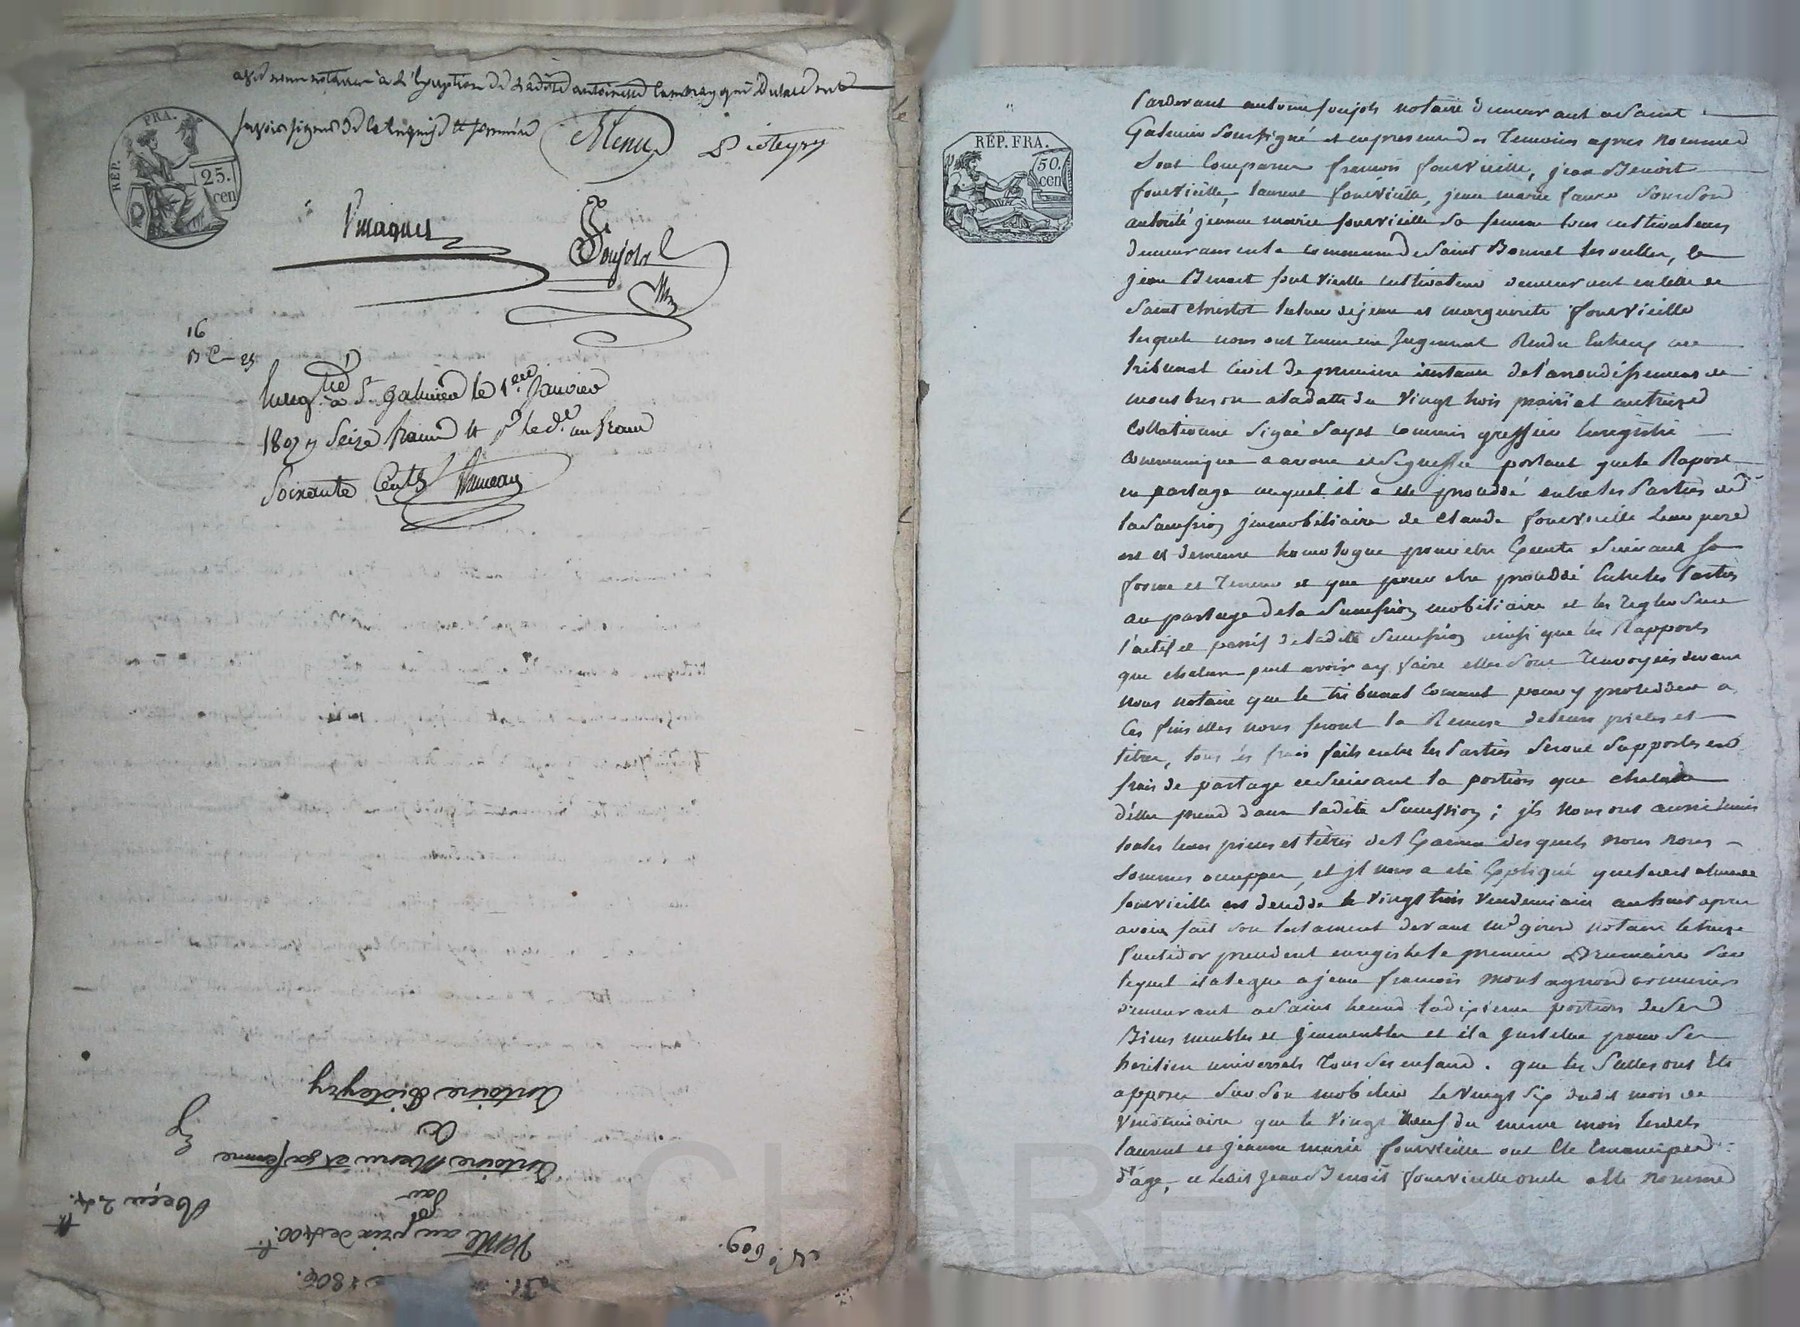 avec nous notaire à l'exception de ladite antoinette qui
savoir signer de ce enquise et sommée
Menu
Bioteyry
RÉP. FRA.
25.
cen
Vmagnes
Soujols
16
enreg.tré à St galmier le 1er Janvier
1807 Seize francs et pr le d.e un franc
Soixante Cent.
N.o 609.
1806.
Vente au prix de 400 f.
par
Antoine Menu et sa femme
a
Antoine Bioteyry
Reçu
RÉP. FRA.
50.
cen
Pardevant antoine soujols notaire demeurant a Saint
Galmier Soussigné et en presence des temoins apres nommes
Sont Comparus francois fourvieille, jean Benoit
fourvieille, laurent fourvieille, jean marie faure de son
autorité jeanne marie fourvieille sa femme tous cultivateurs
demeurants en la commune de Saint Bonnet les oulles, et
jean Benoit fourvieille cultivateur demeurant en celle de
Saint christot tuteur de jean et marguerite fourvieille
lesquels nous ont remis un Jugement Rendu entreux au
tribunal Civil de premiere instance de l'arrondissement de
monbrison a la datte du vingt trois prairial an treize
Collationné Signé commis greffier Enregistré
communiqué a avoué et Signiffié portant que le Raport
en partage auquel il a été proceddé entre les Parties de
la Succession jmmobiliaire de Claude fourvieille leur pere
est et demeure homologué pour etre Executé Suivant sa
forme et teneur et que pour etre proceddé Entre les Parties
au partage de la Succession mobiliaire et les regler sur
l'actif et passif de ladite Succession ainsi que les Rapports
que chacun peut avoir a y faire elles sont Renvoyées devant
nous notaire que le tribunal Commet pour y procedder a
Ces fins elles nous feront la Remise de leurs pieces et
titres, tous les frais faits entre les Parties seront Supportés en
frais de partage et Suivant la portion que chacune
d'elles prend dans ladite Succession ; jls nous ont aussi remis
toutes leurs pieces et titres de l'Examen desquels nous nous
sommes occuppés, et jl nous a été Expliqué que
fourvieille est deceddé le vingt trois Vendemiaire an huit apres
avoir fait son testament devant me notaire le treize
fructidor precedent enregistré le premier Brumaire par
lequel il a legué a jean francois
demeurant a Saint la dixieme portion de ses
Biens meubles et jmmeubles et il a Institué pour ses
heritiers universels tous ses enfans. que les Scellés ont été
apposés sur son mobilier le vingt Six dudit mois de
Vendemiaire que le vingt neuf du meme mois lesdits
laurent et jeanne marie fourvieille ont été Emancipés
d'age, et ledit jean Benoit fourvieille oncle a été nommé